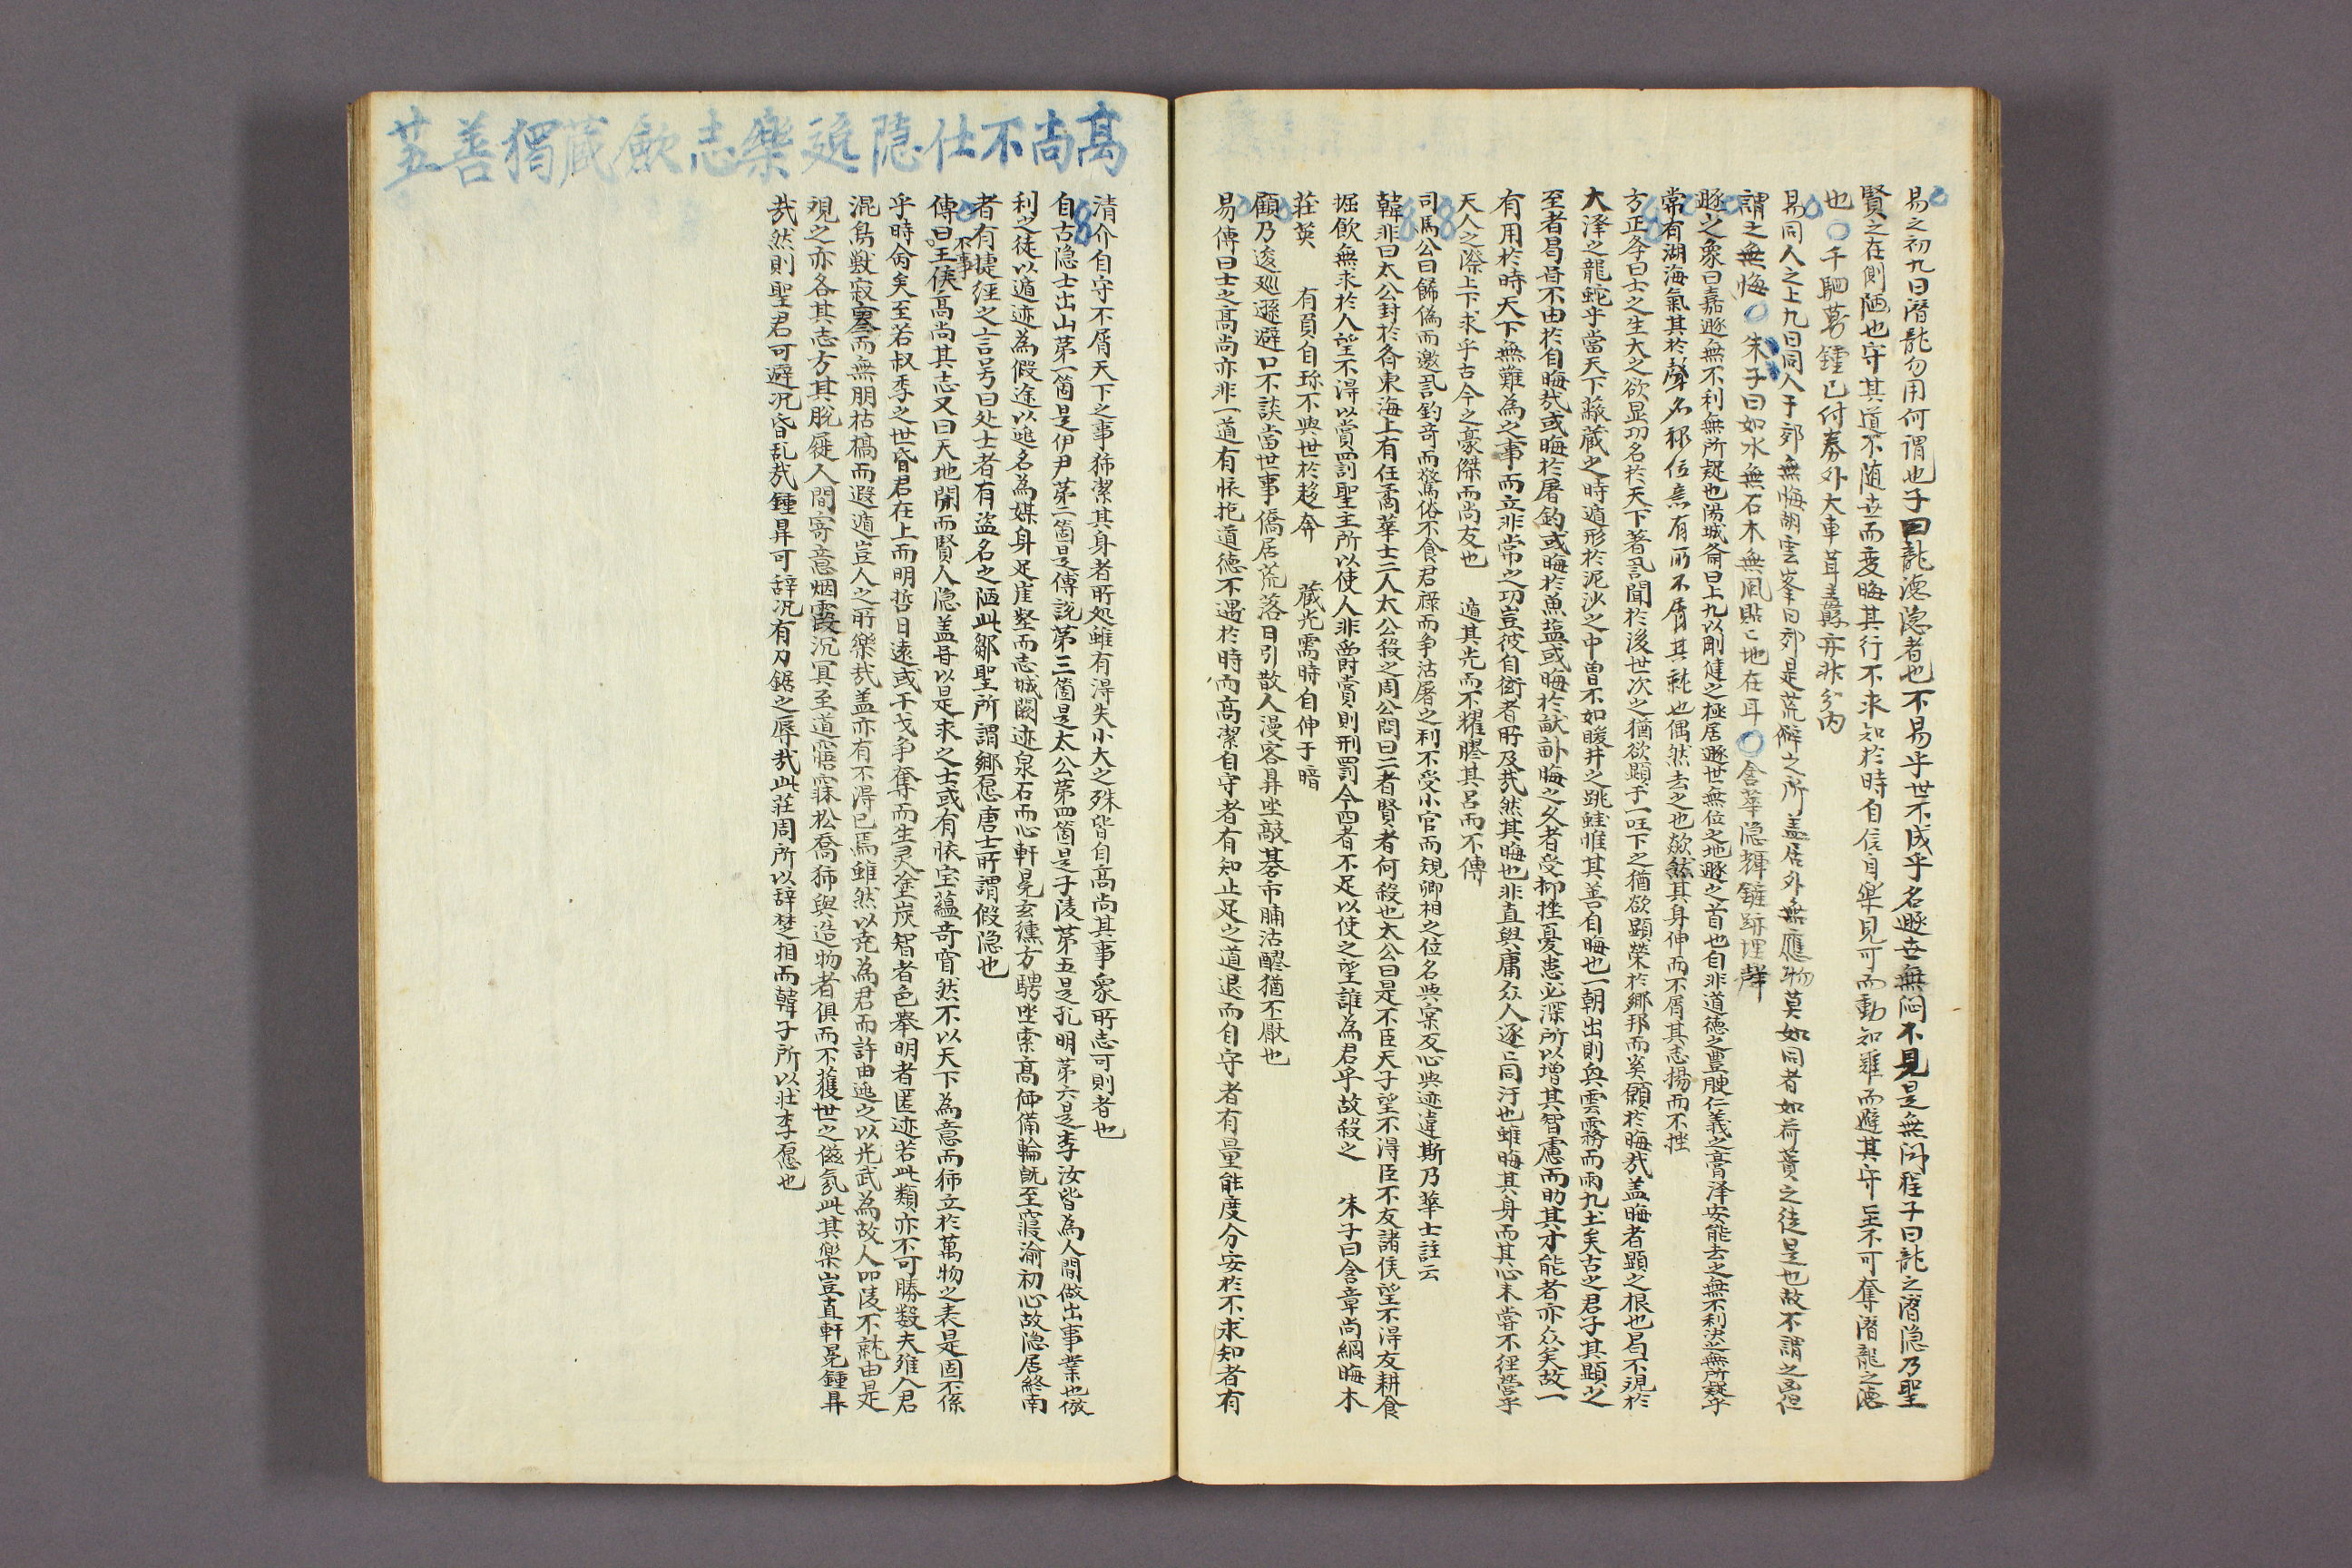 易之初九曰潛龍勿用何謂也子曰龍德隱者也不易乎世不成乎名遯世無悶不見是無悶程子曰龍之潛隱乃聖
賢之在側陋也守其道不随世而変晦其行不求知於時自信自樂見可而動知難而避其守至不可奪潛龍之德
也〇千駟萬鍾已付夢外大車茸纛亦非分内
易同人之上九曰同人于郊無悔胡雲峯曰郊是荒僻之所盖居外無應物莫如同者如荷蕢之徒是也故不謂之凶但
謂之無悔〇朱子曰如水無石木無風貼〻地在耳〇含華隱輝鏟跡埋聲
遯之象曰嘉遯無不利無所疑也陽城齋曰上九以剛健之極居遯世無位之地遯之首也自非道德之豊腴仁義之膏泽安能去之無不利决之無所疑乎
常有湖海氣其於聲名祿位意有所不屑其就也偶然去之也歘然其身伸而不屑其志揚而不挫
方正孝曰士之生大之欲显功名於天下著聲聞於後世次之猶欲顕于一旺下之猶欲顕榮於鄉邦而奚願於晦㢤盖晦者顕之根也曷不視於
大泽之龍蛇乎當天下蔽蔵之時遁形於泥沙之中曽不如畯井之跳蛙惟其善自晦也一朝出則興雲霧而雨九圡矣古之君子其顕之
至者曷甞不由於自晦㢤或晦於屠釣或晦於魚塩或晦於畎畆晦之久者受抑挫憂患必深所以增其智慮而助其才能者亦众矣故一
有用於時天下無難為之事而立非常之功豈彼自衒者所及㢤然其晦也非直與庸众人逐〻同汙也雖晦其身而其心未甞不徑營乎
天人之際上下求乎古今之豪傑而尚友也　遁其光而不耀膠其吕而不傳
司馬公曰餙偽而邀譽釣竒而驚俗不食君祿而争沽屠之利不受小官而規卿相之位名與實反心與迹違斯乃華士註云
韓非曰太公封於齊東海上有任矞華士二人太公殺之周公問曰二者賢者何殺也太公曰是不臣天子望不得臣不友諸侯望不得友耕食
堀飲無求於人望不得以賞罰聖主所以使人非爵賞則刑罰今四者不足以使之望誰為君乎故殺之　朱子曰含章尚綱晦木
莊英　有負自珎不與世於趍奔　蔵光需時自伸于暗
顧乃逡廵遜避口不談當世事僑居荒落日引散人漫客昇坐敲碁市脯沽醪猶不厭也
易傳曰士之髙尚亦非一道有懐抱道德不遇於時而高潔自守者有知止足之道退而自守者有量能度分安於不求知者有
髙尚不仕隱遁樂志歛蔵獨善五
清介自守不屑天下之事獨潔其身者所処雖有得失小大之殊皆自高尚其事象所志可則者也
自古隐士出山第一箇是伊尹第二箇是傅説第三箇是太公第四箇是子陵第五是孔明第六是李汝皆為人間做出事業也徼
利之徒以遁迹為假途以逃名為媒身足崖壑而志城闕迹泉石而心軒冕玄纁方騁坐索高価蒲輪旣至寔渝初心故隐居終南
者有捷徑之言号曰処士者有盗名之陋此鄒聖所謂鄉愿唐士所謂假隐也
傳曰不事王侯高尚其志又曰天地閉而賢人隐盖甞以是求之士或有懐宝蕴竒窅然不以天下為意而獨立於萬物之表是固不係
乎時命矣至若叔季之世昏君在上而明哲日遠或干戈争奪而生灵塗炭智者色舉明者匿迹若此類亦不可勝数夫離人君
混鳥獣寂寥而無朋枯槁而遐遁豈人之所樂㢤盖亦有不得已焉雖然以尭為君而許由逃之以光武為故人而陵不就由是
視之亦各其志方其脱屣人間寄意烟霞沉冥至道寤寐松喬獨與造物者俱而不獲世之滋氛此其樂豈直軒冕鍾昇
㢤然則聖君可避况昏乱㢤鍾昇可辞况有刀鋸之辱㢤此莊周所以辞楚相而韓子所以壮李愿也